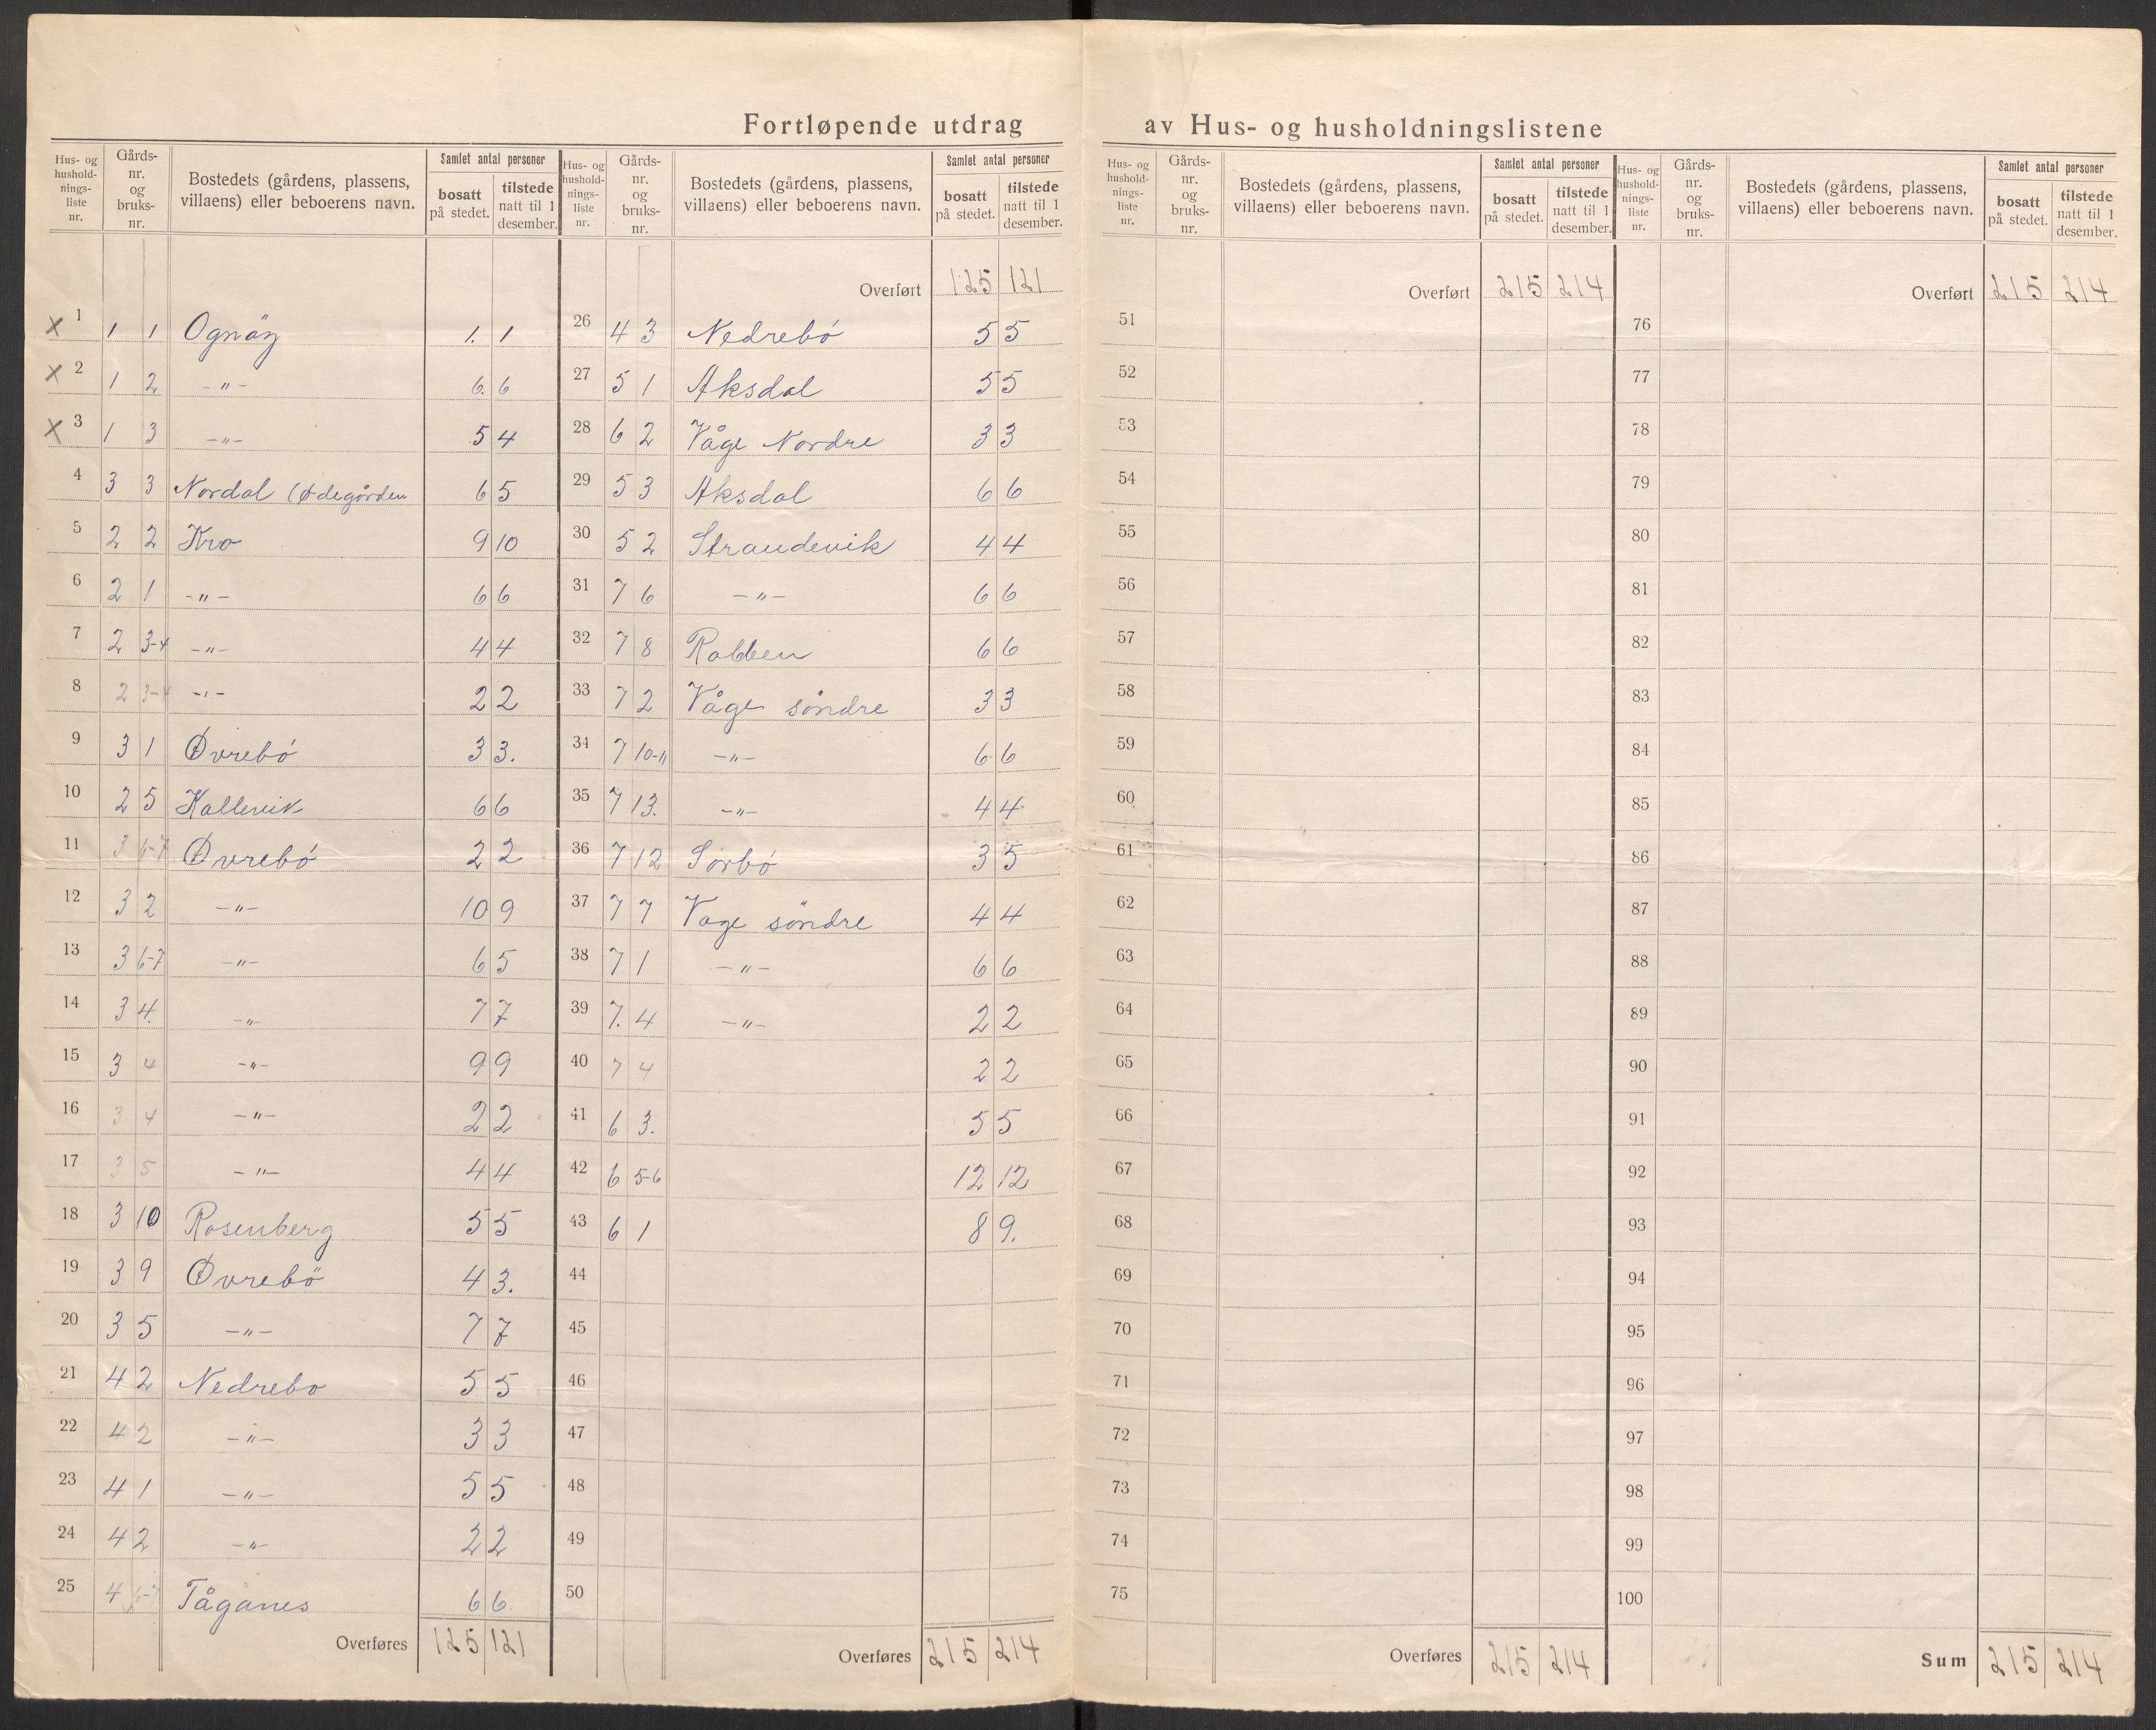 Fortløpende utdrag av Hus- og husholdningslistene
Hus- og husholdningsliste nr. Gårds-nr. og bruks-nr. Bostedets (gårdens, plassens, villaens) eller beboerens navn. Samlet antal personer bosatt på stedet. tilstede natt til 1 desember.
× 1 1 1 Ognöy 1. 1
× 2 1 2 -"- 6. 6
× 3 1 3 -"- 5 4
4 3 3 Nordal (Ødegården 6 5
5 2 2 Kro 9 10
6 2 1 -"- 6 6
7 2 3-4 -"- 4 4
8 2 3-4 -"- 2 2
9 3 1 Øvrebó 3 3.
10 2 5 Kallevik 6 6
11 3 6-7 Øvrebó 2 2
12 3 2 -"- 10 9
13 3 6-7 -"- 6 5
14 3 4. -"- 7 7
15 3 4 -"- 9 9
16 3 4 -"- 2 2
17 3 5 -"- 4 4
18 3 10 Rosenberg 5 5
19 3 9 Øvrebö 4 3.
20 3 5 -"- 7 7
21 4 2 Nedrebo 5 5
22 4 2 -"- 3 3
23 4 1 -"- 5 5
24 4 2 -"- 2 2
25 4 6-7 Tåganes 6 6
Overføres 125 121
Hus- og husholdningsliste nr. Gårds-nr. og bruks-nr. Bostedets (gårdens, plassens, villaens) eller beboerens navn. Samlet antal personer bosatt på stedet. tilstede natt til 1 desember.
Overført 125 121
26 4 3 Nedrebó 5 5
27 5 1 Aksdal 5 5
28 6 2 Våge Nordre 3 3
29 5 3 Aksdal 6 6
30 5 2 Strandevik 4 4
31 7 6 -"- 6 6
32 7 8 Robben 6 6
33 7 2 Våge söndre 3 3
34 7 10-11 -"- 6 6
35 7 13. -"- 4 4
36 7 12 Sørbó 3 5
37 7 7 Vage söndre 4 4
38 7 1 -"- 6 6
39 7. 4 -"- 2 2
40 7 4 2 2
41 6 3. 5 5
42 6 5-6 12 12
43 6 1 8 9.
44
45
46
47
48
49
50
Overføres 215 214
Hus- og husholdningsliste nr. Gårds-nr. og bruks-nr. Bostedets (gårdens, plassens, villaens) eller beboerens navn. Samlet antal personer bosatt på stedet. tilstede natt til 1 desember.
Overført 215 214
51
52
53
54
55
56
57
58
59
60
61
62
63
64
65
66
67
68
69
70
71
72
73
74
75
Overføres 215 214
Hus- og husholdningsliste nr. Gårds-nr. og bruks-nr. Bostedets (gårdens, plassens, villaens) eller beboerens navn. Samlet antal personer bosatt på stedet. tilstede natt til 1 desember.
Overført 215 214
76
77
78
79
80
81
82
83
84
85
86
87
88
89
90
91
92
93
94
95
96
97
98
99
100
Sum 215 214